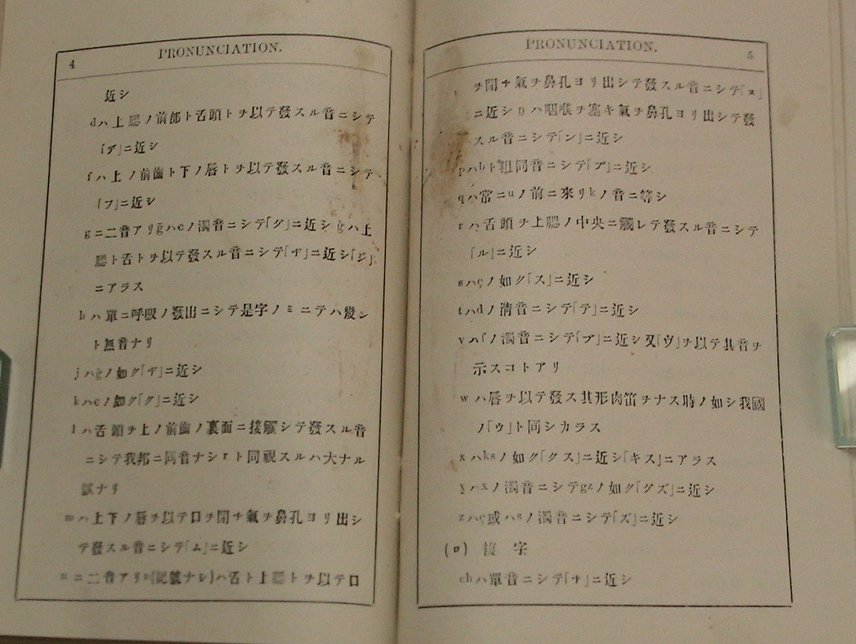 4
PRONUNCIATION.
近シ
dハ上腭ノ前部ト舌頭トヲ以テ發スル音ニシテ
「デ」ニ近シ
fハ上ノ前齒ト下ノ唇トヲ以テ發スル音ニシテ
「フ」ニ近シ
gニ二音アリḡハcノ濁音ニシテ「グ」ニ近シġハ上
腭ト舌トヲ以テ發スル音ニシテ「ヂ」ニ近シ「ジ」
ニアラス
hハ單ニ呼吸ノ發出ニシテ是字ノミニテハ幾ン
ト無音ナリ
jハġノ如グ「ヂ」ニ近シ
kハcノ如グ「ク」ニ近シ
lハ舌頭ヲ上ノ前齒ノ裏面ニ接觸シテ發スル音
ニシテ我邦ニ同音ナシrト同視スルハ大ナル
誤ナリ
mハ上下ノ唇ヲ以テ口ヲ閉ヂ氣ヲ鼻孔ヨリ出シ
テ發スル音ニシテ「ム」ニ近シ
nニ二音アリn(記號ナシ)ハ舌ト上腭トヲ以テ口
PRONUNCIATION.
5
ヲ閉ヂ氣ヲ鼻孔ヨリ出シテ發スル音ニシテ「ヌ」
ニ近シ ハ咽喉ヲ塞キ氣ヲ鼻孔ヨリ出シテ發
スル音ニシテ「ン」ニ近シ
pハbト粗同音ニシテ「プ」ニ近シ
qハ常ニuノ前ニ來リkノ音ニ等シ
rハ舌頭ヲ上腭ノ中央ニ觸レテ發スル音ニシテ
「ル」ニ近シ
sハçノ如グ「ス」ニ近シ
tハdノ淸音ニシテ「テ」ニ近シ
vハfノ濁音ニシテ「ブ」ニ近シ又「ヴ」ヲ以テ其音ヲ
示スコトアリ
wハ唇ヲ以テ發ス其形肉笛ヲナス時ノ如シ我國
ノ「ウ」ト同シカラス
xハksノ如グ「クス」ニ近シ「キス」ニアラス
x̱ハxノ濁音ニシテgzノ如グ「グズ」ニ近シ
zハç或ハsノ濁音ニシテ「ズ」ニ近シ
(ロ) 複字
chハ單音ニシテ「チ」ニ近シ